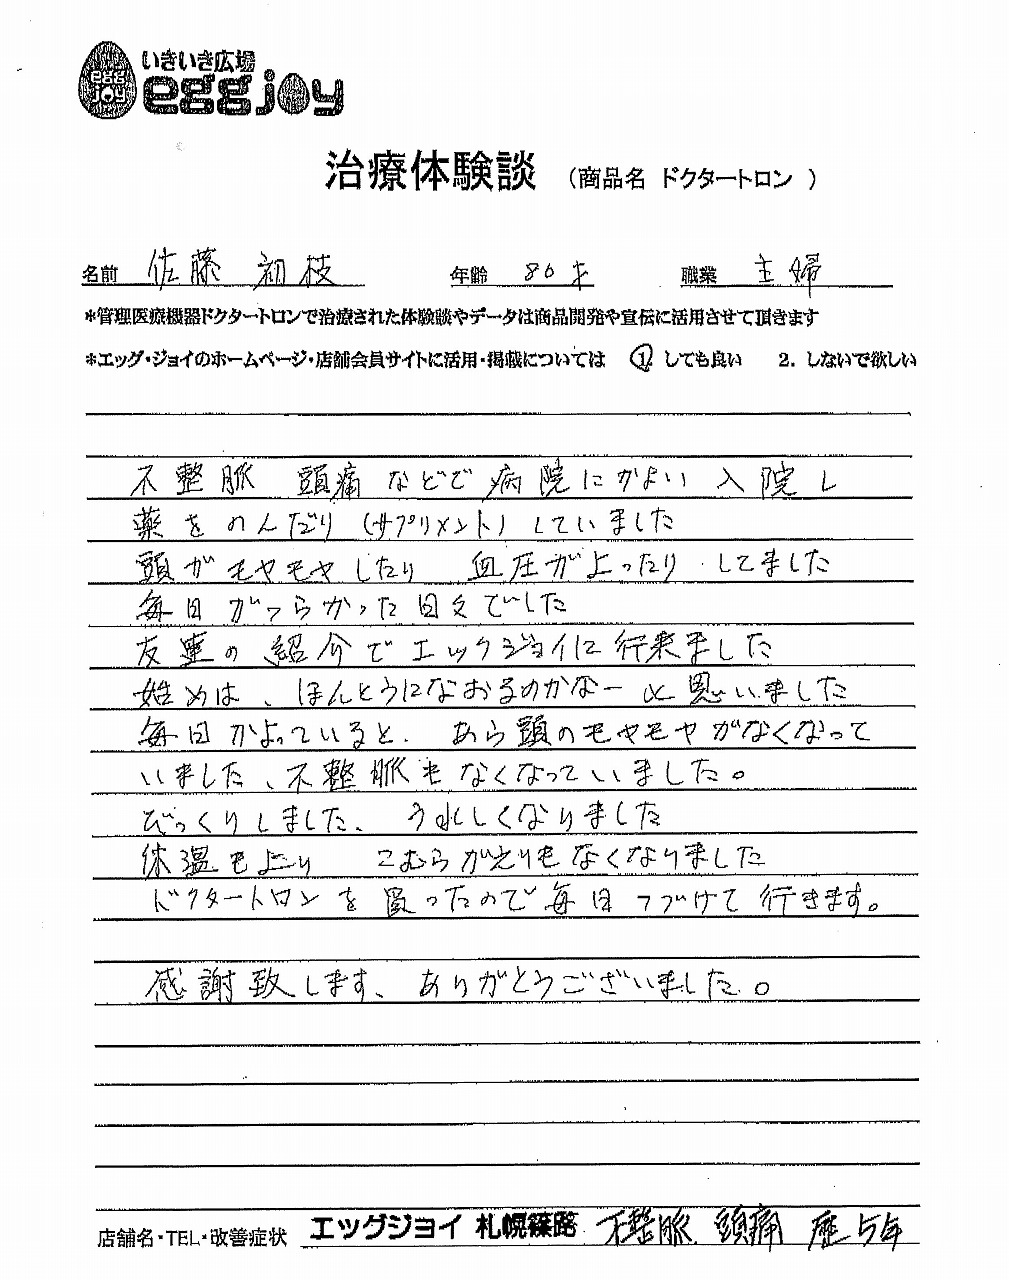 いきいき広場
egg joy
eggjoy
治療体験談 （商品名 ドクタートロン ）
名前 佐藤 初枝 年齢 80才 職業 主婦
*管理医療機器ドクタートロンで治療された体験談やデータは商品開発や宣伝に活用させて頂きます
*エッグ・ジョイのホームページ・店舗会員サイトに活用・掲載については ① しても良い 2. しないで欲しい
不整脈 頭痛などで病院にかよい 入院し
薬をのんだり（サプリメント）していました
頭がモヤモヤしたり 血圧が上ったり してました
毎日がつらかった日々でした
友達の紹介でエックジョイに行来ました
始めは、ほんとうになおるのかなーと思いました
毎日かよっていると、あら頭のモヤモヤがなくなって
いました、不整脈もなくなっていました。
びっくりしました、うれしくなりました
体温も上り こむらがえりもなくなりました
ドクタートロンを買ったので毎日つづけて行きます。
感謝致します、ありがとうございました。
店舗名・TEL・改善症状 エッグジョイ 札幌篠路 不整脈 頭痛 歴5年